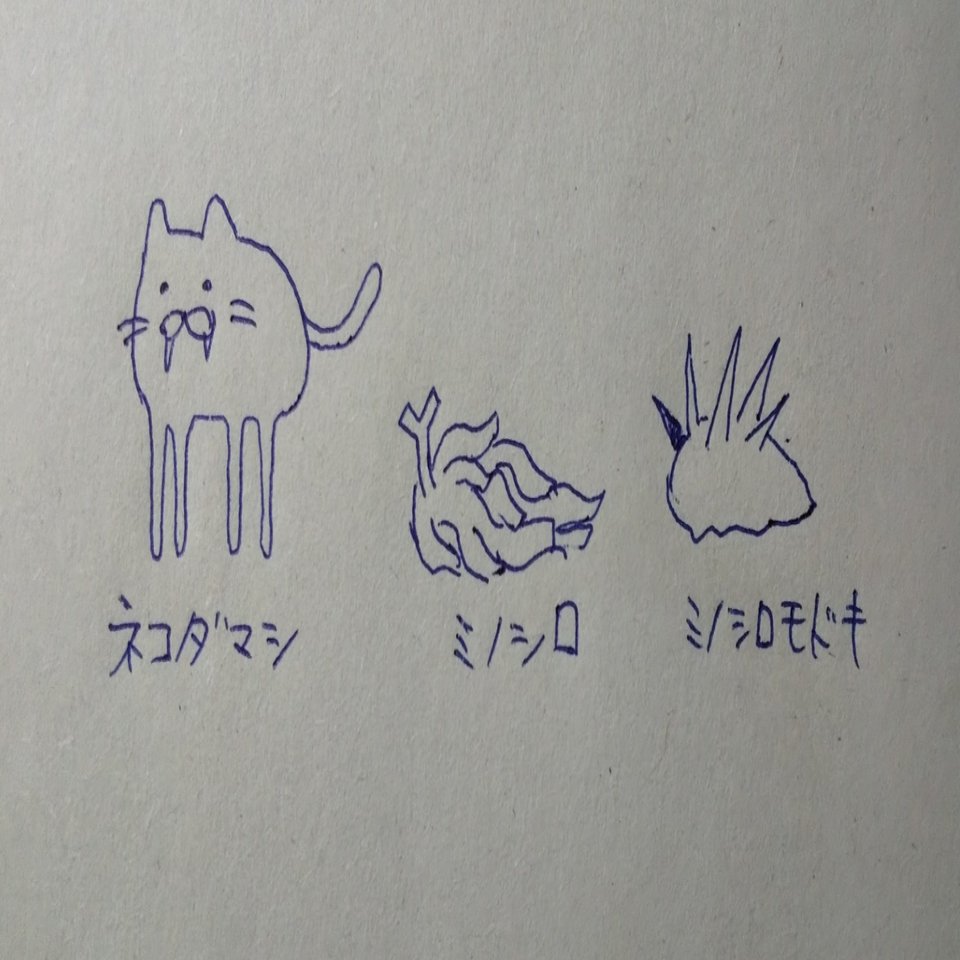 ネコダマシ
ミノシロ
ミノシロモドキ